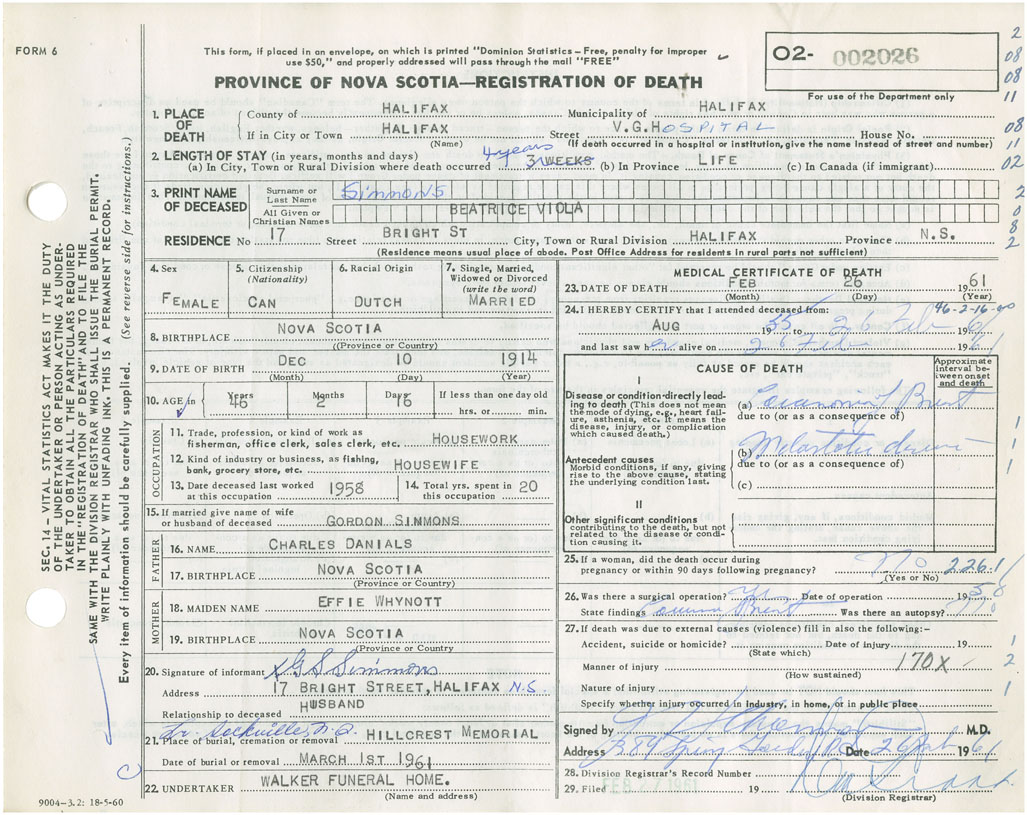 FORM 6
This form, if placed in an envelope, on which is printed "Dominion Statistics – Free, penalty for improper
use $50," and properly addressed will pass through the mail "FREE"
PROVINCE OF NOVA SCOTIA—REGISTRATION OF DEATH
O2- 002026
For use of the Department only
2
08
08
11
08
11
02
2
0
8
2
SEC. 14 – VITAL STATISTICS ACT MAKES IT THE DUTY
OF THE UNDERTAKER OR PERSON ACTING AS UNDER-
TAKER TO OBTAIN ALL THE PARTICULARS REQUIRED
IN THE "REGISTRATION OF DEATH" AND TO FILE THE
SAME WITH THE DIVISION REGISTRAR WHO SHALL ISSUE THE BURIAL PERMIT.
WRITE PLAINLY WITH UNFADING INK. THIS IS A PERMANENT RECORD.
Every item of information should be carefully supplied. (See reverse side for instructions.)
1. PLACE OF DEATH
County of HALIFAX Municipality of HALIFAX
If in City or Town HALIFAX Street V.G.HOSPITAL House No.
(Name) (If death occurred in a hospital or institution, give the name instead of street and number)
2. LENGTH OF STAY (in years, months and days) 4 years
(a) In City, Town or Rural Division where death occurred 3 WEEKS (b) In Province LIFE (c) In Canada (if immigrant)
3. PRINT NAME OF DECEASED
Surname or Last Name Simmons
All Given or Christian Names BEATRICE VIOLA
RESIDENCE No 17 Street BRIGHT ST City, Town or Rural Division HALIFAX Province N.S.
(Residence means usual place of abode. Post Office Address for residents in rural parts not sufficient)
4. Sex FEMALE
5. Citizenship (Nationality) CAN
6. Racial Origin DUTCH
7. Single, Married, Widowed or Divorced (write the word) MARRIED
8. BIRTHPLACE NOVA SCOTIA
((Province or Country)
9. DATE OF BIRTH DEC 10 1914
(Month) (Day) (Year)
10. AGE in Years 46 Months 2 Days 16 If less than one day old
hrs. or min.
OCCUPATION
11. Trade, profession, or kind of work as
fisherman, office clerk, sales clerk, etc. HOUSEWORK
12. Kind of industry or business, as fishing,
bank, grocery store, etc. HOUSEWIFE
13. Date deceased last worked
at this occupation 1958
14. Total yrs. spent in
this occupation 20
15. If married give name of wife
or husband of deceased GORDON SIMMONS
FATHER
16. NAME CHARLES DANIALS
17. BIRTHPLACE NOVA SCOTIA
(Province or Country)
MOTHER
18. MAIDEN NAME EFFIE WHYNOTT
19. BIRTHPLACE NOVA SCOTIA
(Province or Country)
20. Signature of informant x G S Simmons
Address 17 BRIGHT STREET, HALIFAX N.S.
Relationship to deceased HUSBAND
Sackville, N.S.
21. Place of burial, cremation or removal HILLCREST MEMORIAL
Date of burial or removal MARCH 1ST 1961
22. UNDERTAKER WALKER FUNERAL HOME.
(Name and address)
9004–3.2: 18-5-60
MEDICAL CERTIFICATE OF DEATH
23. DATE OF DEATH FEB 26 1961
(Month) (Day) (Year)
46-2-16
24. I HEREBY CERTIFY that I attended deceased from:
AUG 1955 to 26 Feb 1961
and last saw her alive on 26 Feb 1961
CAUSE OF DEATH
Approximate interval between onset and death
I
Disease or condition directly leading to death (This does not mean the mode of dying, e.g., heart failure, asthenia, etc. It means the disease, injury, or complication which caused death.)
(a) Carcinoma of Breast
due to (or as a consequence of)
Antecedent causes
Morbid conditions, if any, giving rise to the above cause, stating the underlying condition last.
(b) Metastatic disease
due to (or as a consequence of)
(c)
II
Other significant conditions
contributing to the death, but not related to the disease or condition causing it.
25. If a woman, did the death occur during
pregnancy or within 90 days following pregnancy? No 226.1
(Yes or No)
26. Was there a surgical operation? yes Date of operation 1958
State findings Carcinoma Breast Was there an autopsy? no
27. If death was due to external causes (violence) fill in also the following:–
Accident, suicide or homicide? Date of injury 19
(State which)
Manner of injury 170X
(How sustained)
Nature of injury
Specify whether injury occurred in industry, in home, or in public place
Signed by M.D.
Address 389 Spring Garden Rd Date 26 Feb 1961
28. Division Registrar's Record Number
29. Filed FEB 27 1961 19
(Division Registrar)